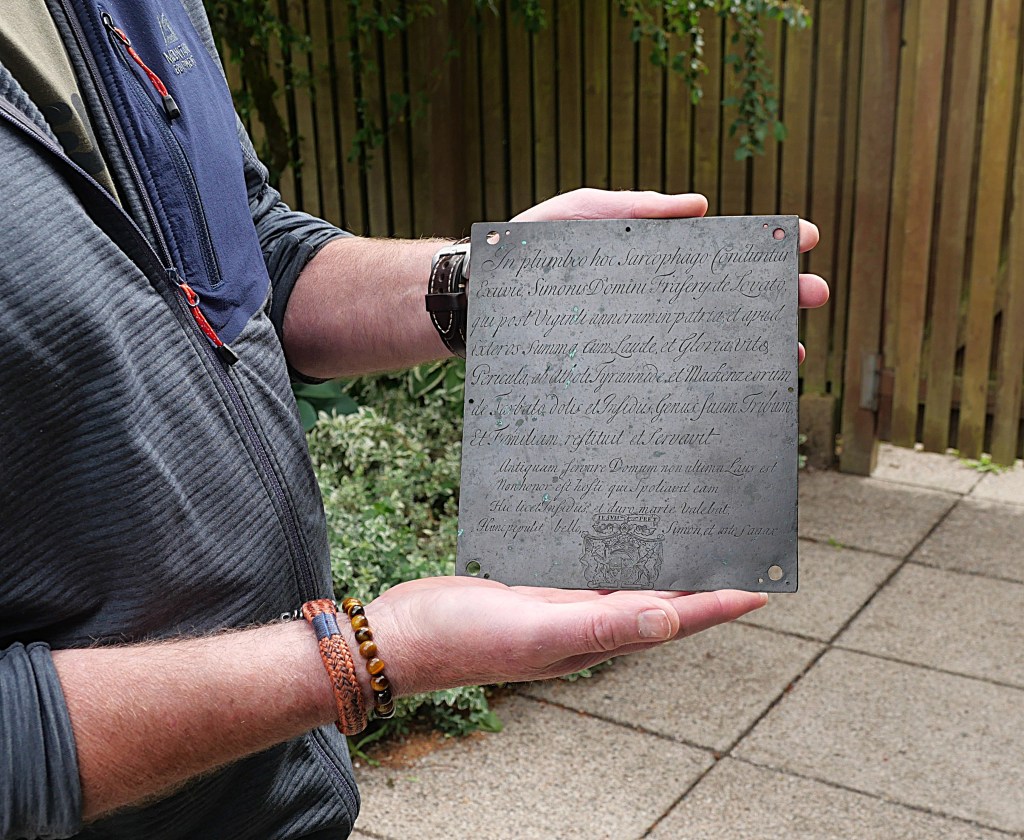 In plumbeo hoc Sarcophago Conduntur
Exuviæ Simonis Domini Fraser de Lovato,
qui post Viginti annorum in patria, et apud
exteros Summa Cum Laude, et Gloria, vitæ
Pericula, ab Atholi Tyrannide, et Mackenzeorum
de Tarbato, dolis et Insidiis, Genus Suum, Tribum
Et Familiam, restituit et Servavit
Antiquam servare Domum non ultima Laus est
Non honor est hosti qui Spoliavit eam
Hic licet Insidiis, et duro marte Valebat
Hunc pepulit bello Simon, et arte Sagax
JE SUIS PRET